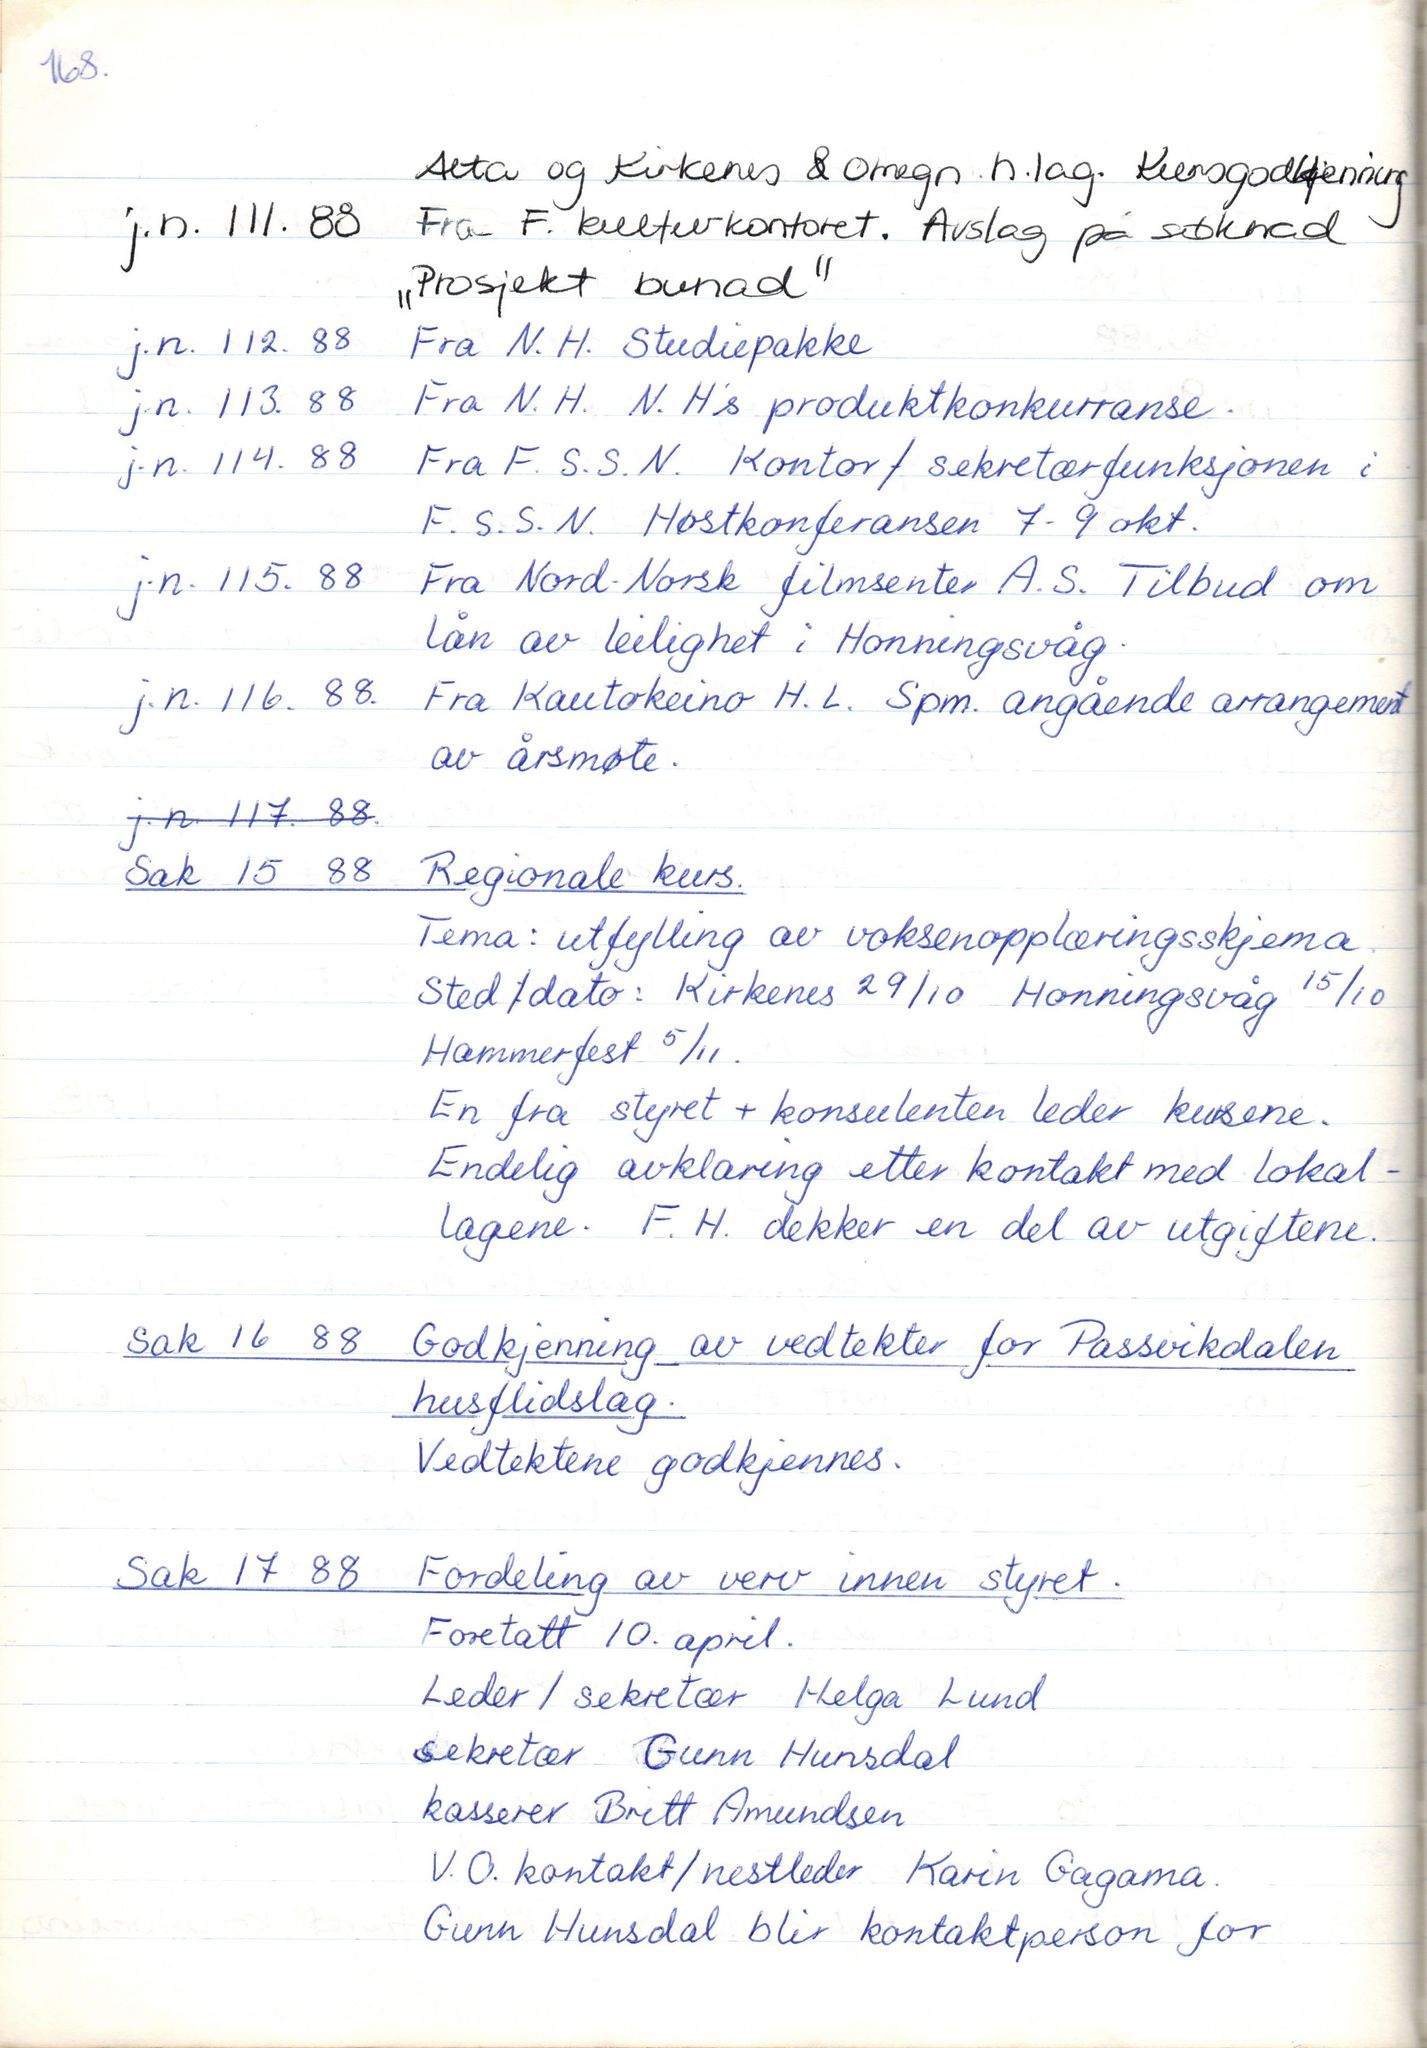 168.
Alta og Kirkenes & omegn h.lag. Kursgodkjenning
j.n. 111. 88 Fra F. kulturkontoret. Avslag på søknad
„Prosjekt bunad"
j.n. 112. 88 Fra N.H. Studiepakke
j.n. 113. 88 Fra N.H. N.H's produktkonkurranse.
j.n. 114. 88 Fra F.S.S.N. Kontor/sekretærfunksjonen i
F.S.S.N. Høstkonferansen 7-9 okt.
j.n. 115. 88 Fra Nord-Norsk filmsenter A.S. Tilbud om
lån av leilighet i Honningsvåg.
j.n. 116. 88. Fra Kautokeino H.L. Spm. angående arrangement
av årsmøte.
j.n. 117. 88.
Sak 15 88 Regionale kurs.
Tema: utfylling av voksenopplæringsskjema.
Sted/dato: Kirkenes 29/10 Honningsvåg 15/10
Hammerfest 5/11.
En fra styret + konsulenten leder kursene.
Endelig avklaring etter kontakt med lokal-
lagene. F.H. dekker en del av utgiftene.
Sak 16 88 Godkjenning av vedtekter for Passvikdalen
husflidslag.
Vedtektene godkjennes.
Sak 17 88 Fordeling av verv innen styret.
Foretatt 10. april.
Leder/sekretær Helga Lund
sekretær Gunn Hunsdal
kasserer Britt Amundsen
V.O. kontakt/nestleder Karin Gagama.
Gunn Hunsdal blir kontaktperson for